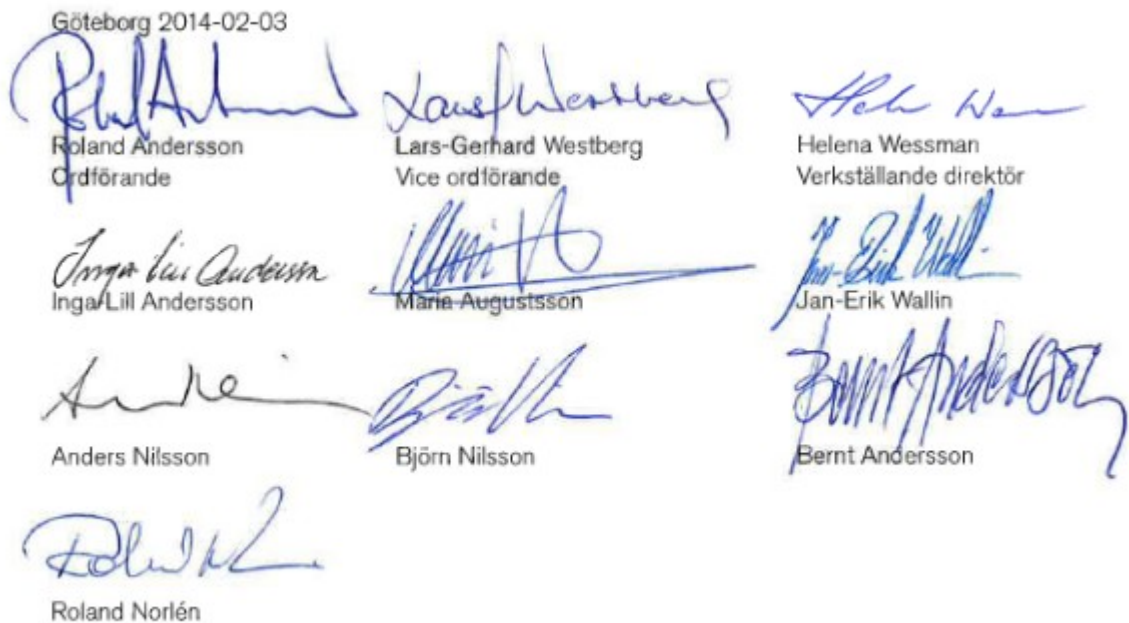 Göteborg 2014-02-03
Roland Andersson
Ordförande
Lars-Gerhard Westberg
Vice ordförande
Helena Wessman
Verkställande direktör
Inga Lill Andersson
Inga-Lill Andersson
Maria Augustsson
Jan-Erik Wallin
Anders Nilsson
Björn Nilsson
Bernt Andersson
Bernt Andersson
Roland Norlén